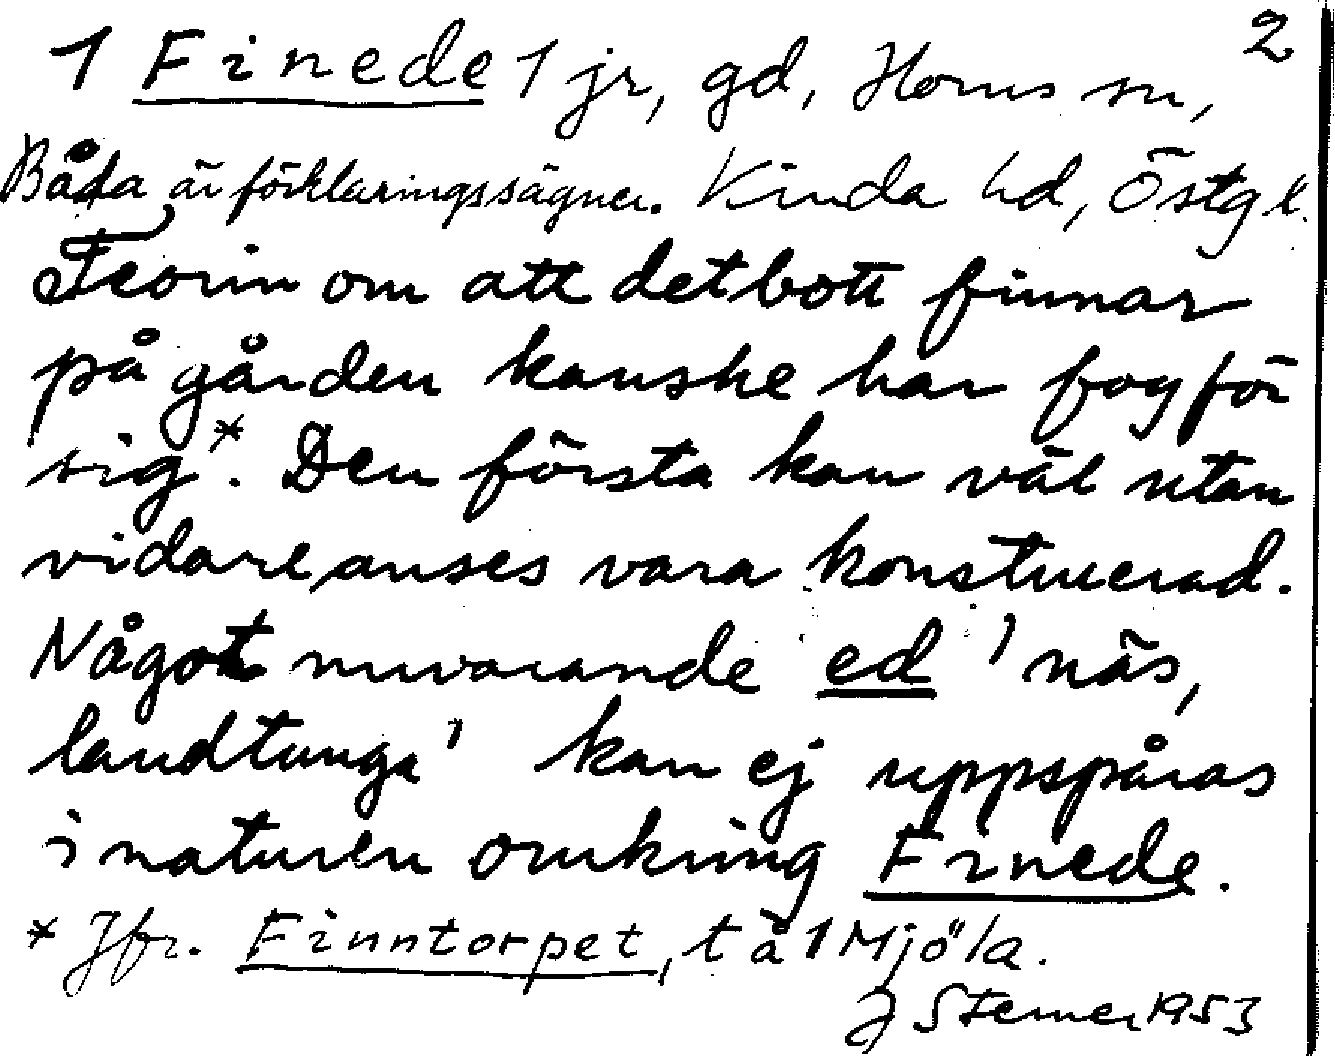 2
1 Finede 1 jr, gd, Horns sn,
Båda är förklaringssägner. Kinda hd, Östgl.
Teorin om att det bott finnar
på gården kanske har fog för
sig*. Den första kan väl utan
vidare anses vara konstruerad.
Något nuvarande ed 'näs,
landtunga' kan ej uppspåras
i naturen omkring Finede.
* Jfr. Finntorpet, t å 1 Mjöla.
J Sterner 1953